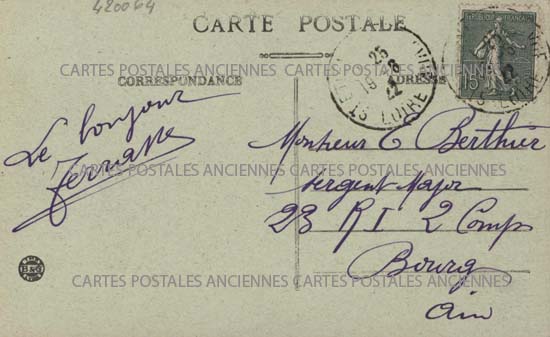 420064
CARTE POSTALE
CORRESPONDANCE
ADRESSE
RÉPUBLIQUE FRANÇAISE
15
25
LOIRE
CARTES POSTALES ANCIENNES CARTES POSTALES ANCIENNES
Le bonjour
Terrasse
Monsieur E Berthier
CARTES POSTALES ANCIENNES CARTES POSTALES ANCIENNES
Sergent Major
23 R I 2 Comp
Bourg
CARTES POSTALES ANCIENNES CARTES POSTALES ANCIENNES
Ain